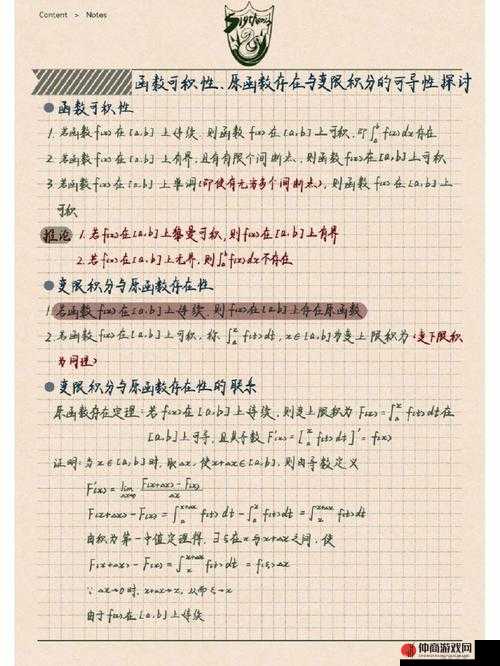 Content > Notes
Slytherin
函数可积性、原函数存在与变限积分的可导性探讨
函数可积性
1. 若函数 f(x) 在 [a,b] 上连续,则函数 f(x) 在 [a,b] 上可积,即∫ₐᵇ f(x)dx存在
2. 若函数 f(x) 在 [a,b] 上有界,且有有限个间断点,则函数 f(x) 在 [a,b] 上可积
3. 若函数 f(x) 在 [a,b] 上单调(即使有无穷多个间断点),则函数 f(x) 在 [a,b] 上
可积
推论 1. 若 f(x) 在 [a,b] 上黎曼可积,则 f(x) 在 [a,b] 上有界
2. 若 f(x) 在 [a,b] 上无界,则∫ₐᵇ f(x)dx不存在
变限积分与原函数存在性
1. 若函数 f(x) 在 [a,b] 上连续,则 f(x) 在 [a,b] 上存在原函数
2. 若函数 f(x) 在 [a,b] 上可积,称 ∫ₐˣ f(t)dt, x∈[a,b] 为变上限积分(变下限积
为同理)
变限积分与原函数存在性的联系
原函数存在定理:若 f(x) 在 [a,b] 上连续,则变上限积分 F(x)=∫ₐˣ f(t)dt 在
[a,b] 上可导,且其导数 F'(x)=[∫ₐˣ f(t)dt]'=f(x)
证明:当 x∈[a,b] 时,取Δx,使x+Δx∈[a,b],则由导数定义
F'(x)=lim Δx→0 F(x+Δx)-F(x)/Δx
F(x+Δx)-F(x)=∫ₐˣ⁺ᐞˣ f(t)dt-∫ₐˣ f(t)dt=∫ₓˣ⁺ᐞˣ f(t)dt
由积分第一中值定理得,∃ξ在x与x+Δx之间,使
F(x+Δx)-F(x)=∫ₓˣ⁺ᐞˣ f(t)dt=f(ξ)Δx
∵ Δx→0时,x+Δx→x,从而ξ→x
由于f(x)在[a,b]上连续
仲商游戏网